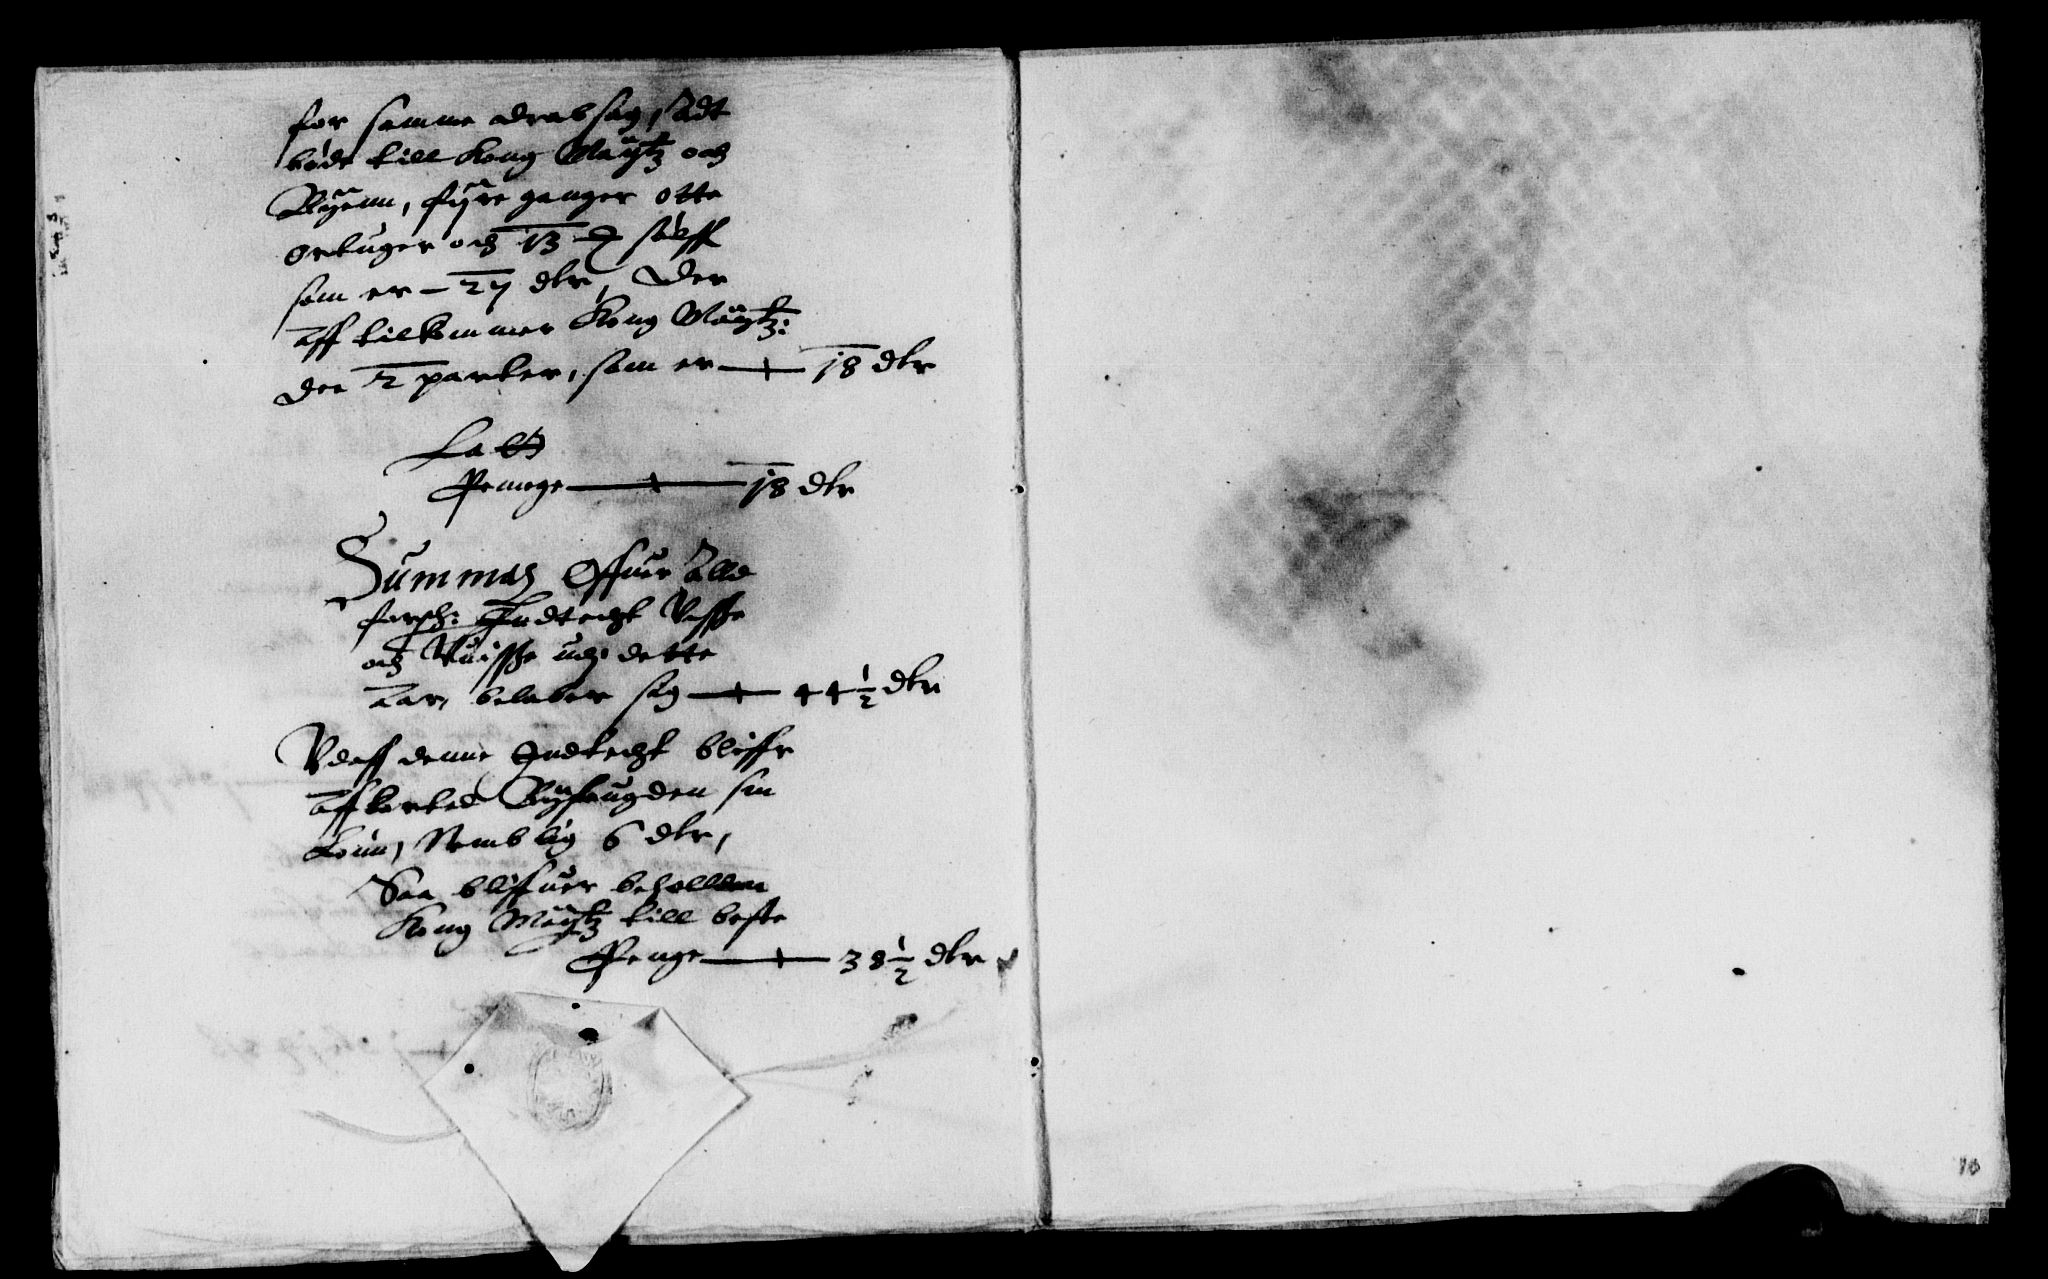 for samme drabsag, Adt
bøde till Kong Maÿtz och
Byenn, fÿre ganger otte
Ørtuger och 13 ₰ søllff
som er – 27 dlr, Der
aff tilkommer Kong Maÿtz:
den 2 parter, som er — 18 dlr
Latt
Penge — 18 dlr
Summa Offuer Alld
forsch: Indtecht Visse
och Vuisse udj dette
Aar, beløber sig — 44½ dlr
Vdaff denne Indtecht bliffr
Affkorted Byfougden sin
Lønn, Nemblig 6 dlr,
Saa bliffuer beholdenn
Kong Maÿtz till beste
Penge — 38½ dlr
10